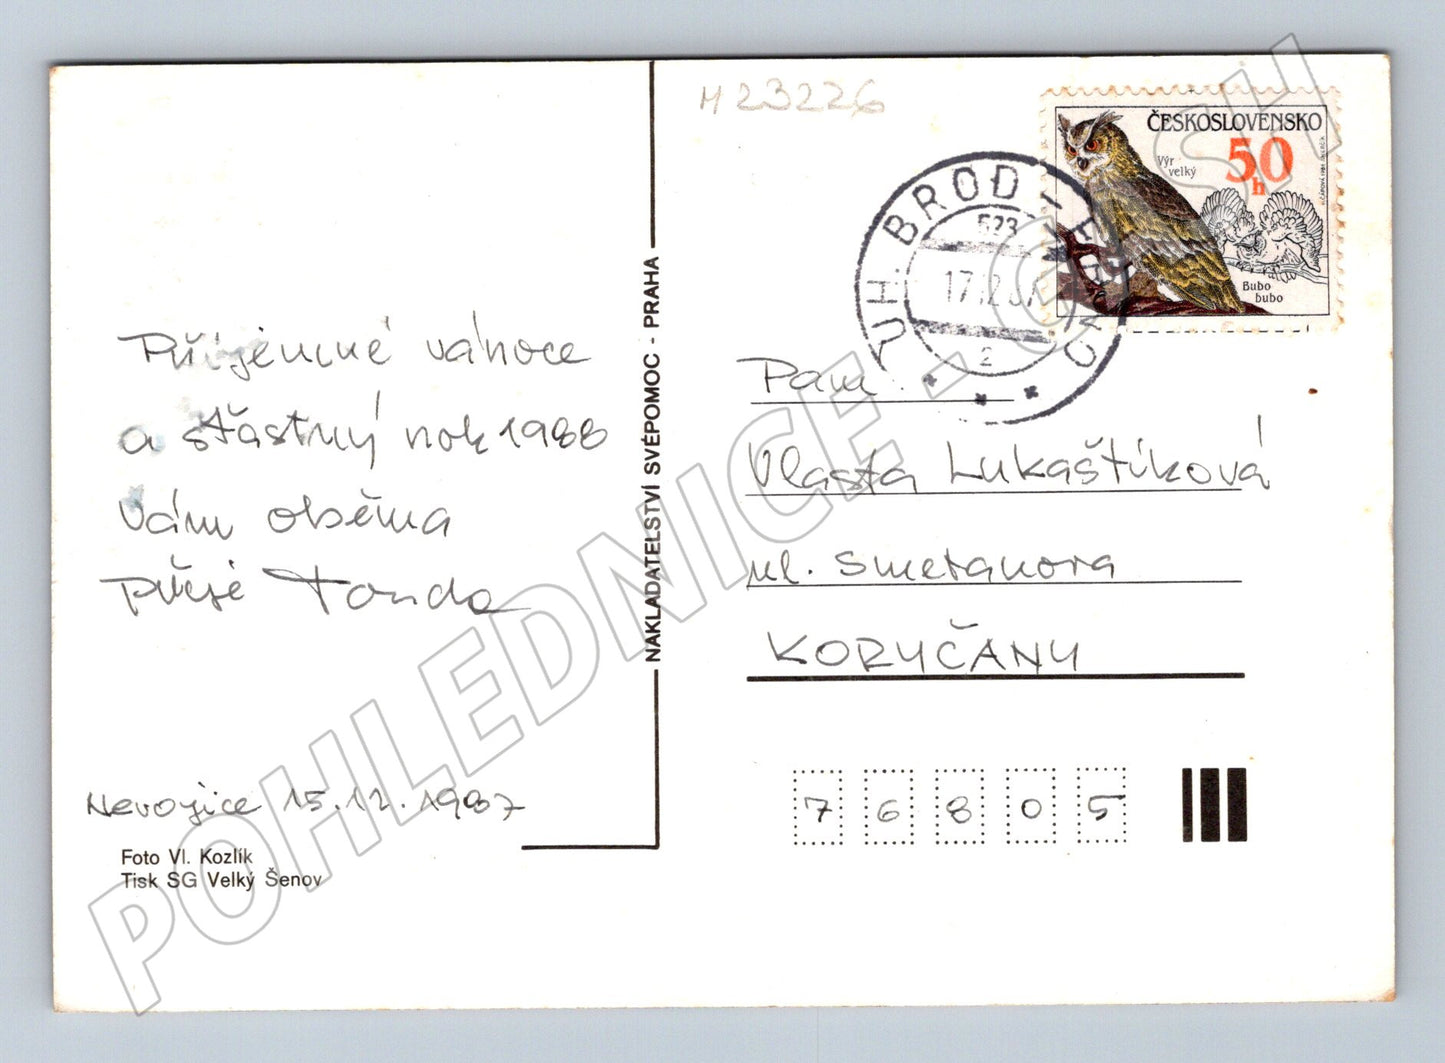 M 23226
ČESKOSLOVENSKO
50
h
Výr
velký
Bubo
bubo
UH. BROD
2
Příjemné vánoce
a šťástný rok 1988
vám oběma
přeje Tonda
Nevojice 15.12.1987
Foto Vl. Kozlík
Tisk SG Velký Šenov
NAKLADATELSTVÍ SVÉPOMOC - PRAHA
Paní
Vlasta Lukaštíková
ul. Smetanova
KORYČANY
7 6 8 0 5
POHLEDNICE - CZ SH